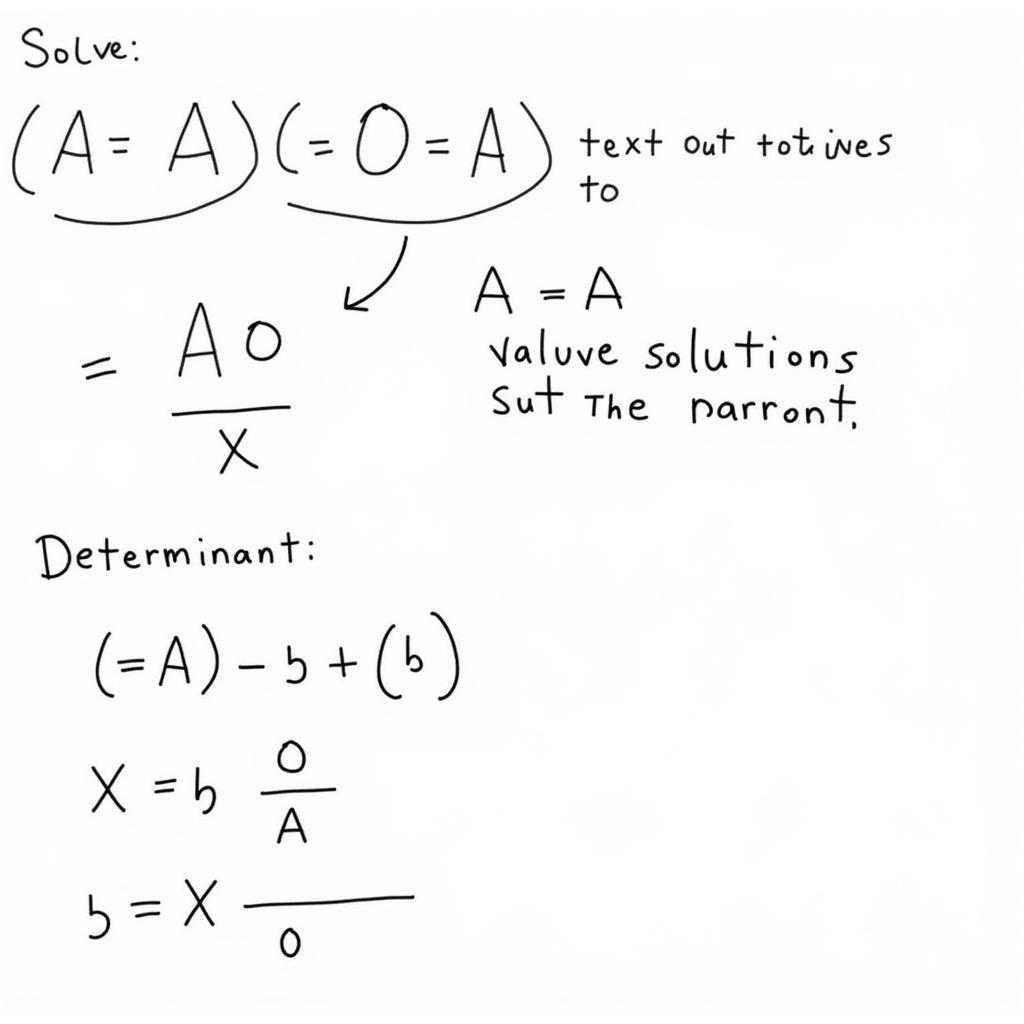 Solve:
(A = A)(= O = A) text out
to
= A O / X
A = A
valuve solutions
sut The parront.
Determinant:
(= A) - b + (b)
X = b O / A
b = X / o